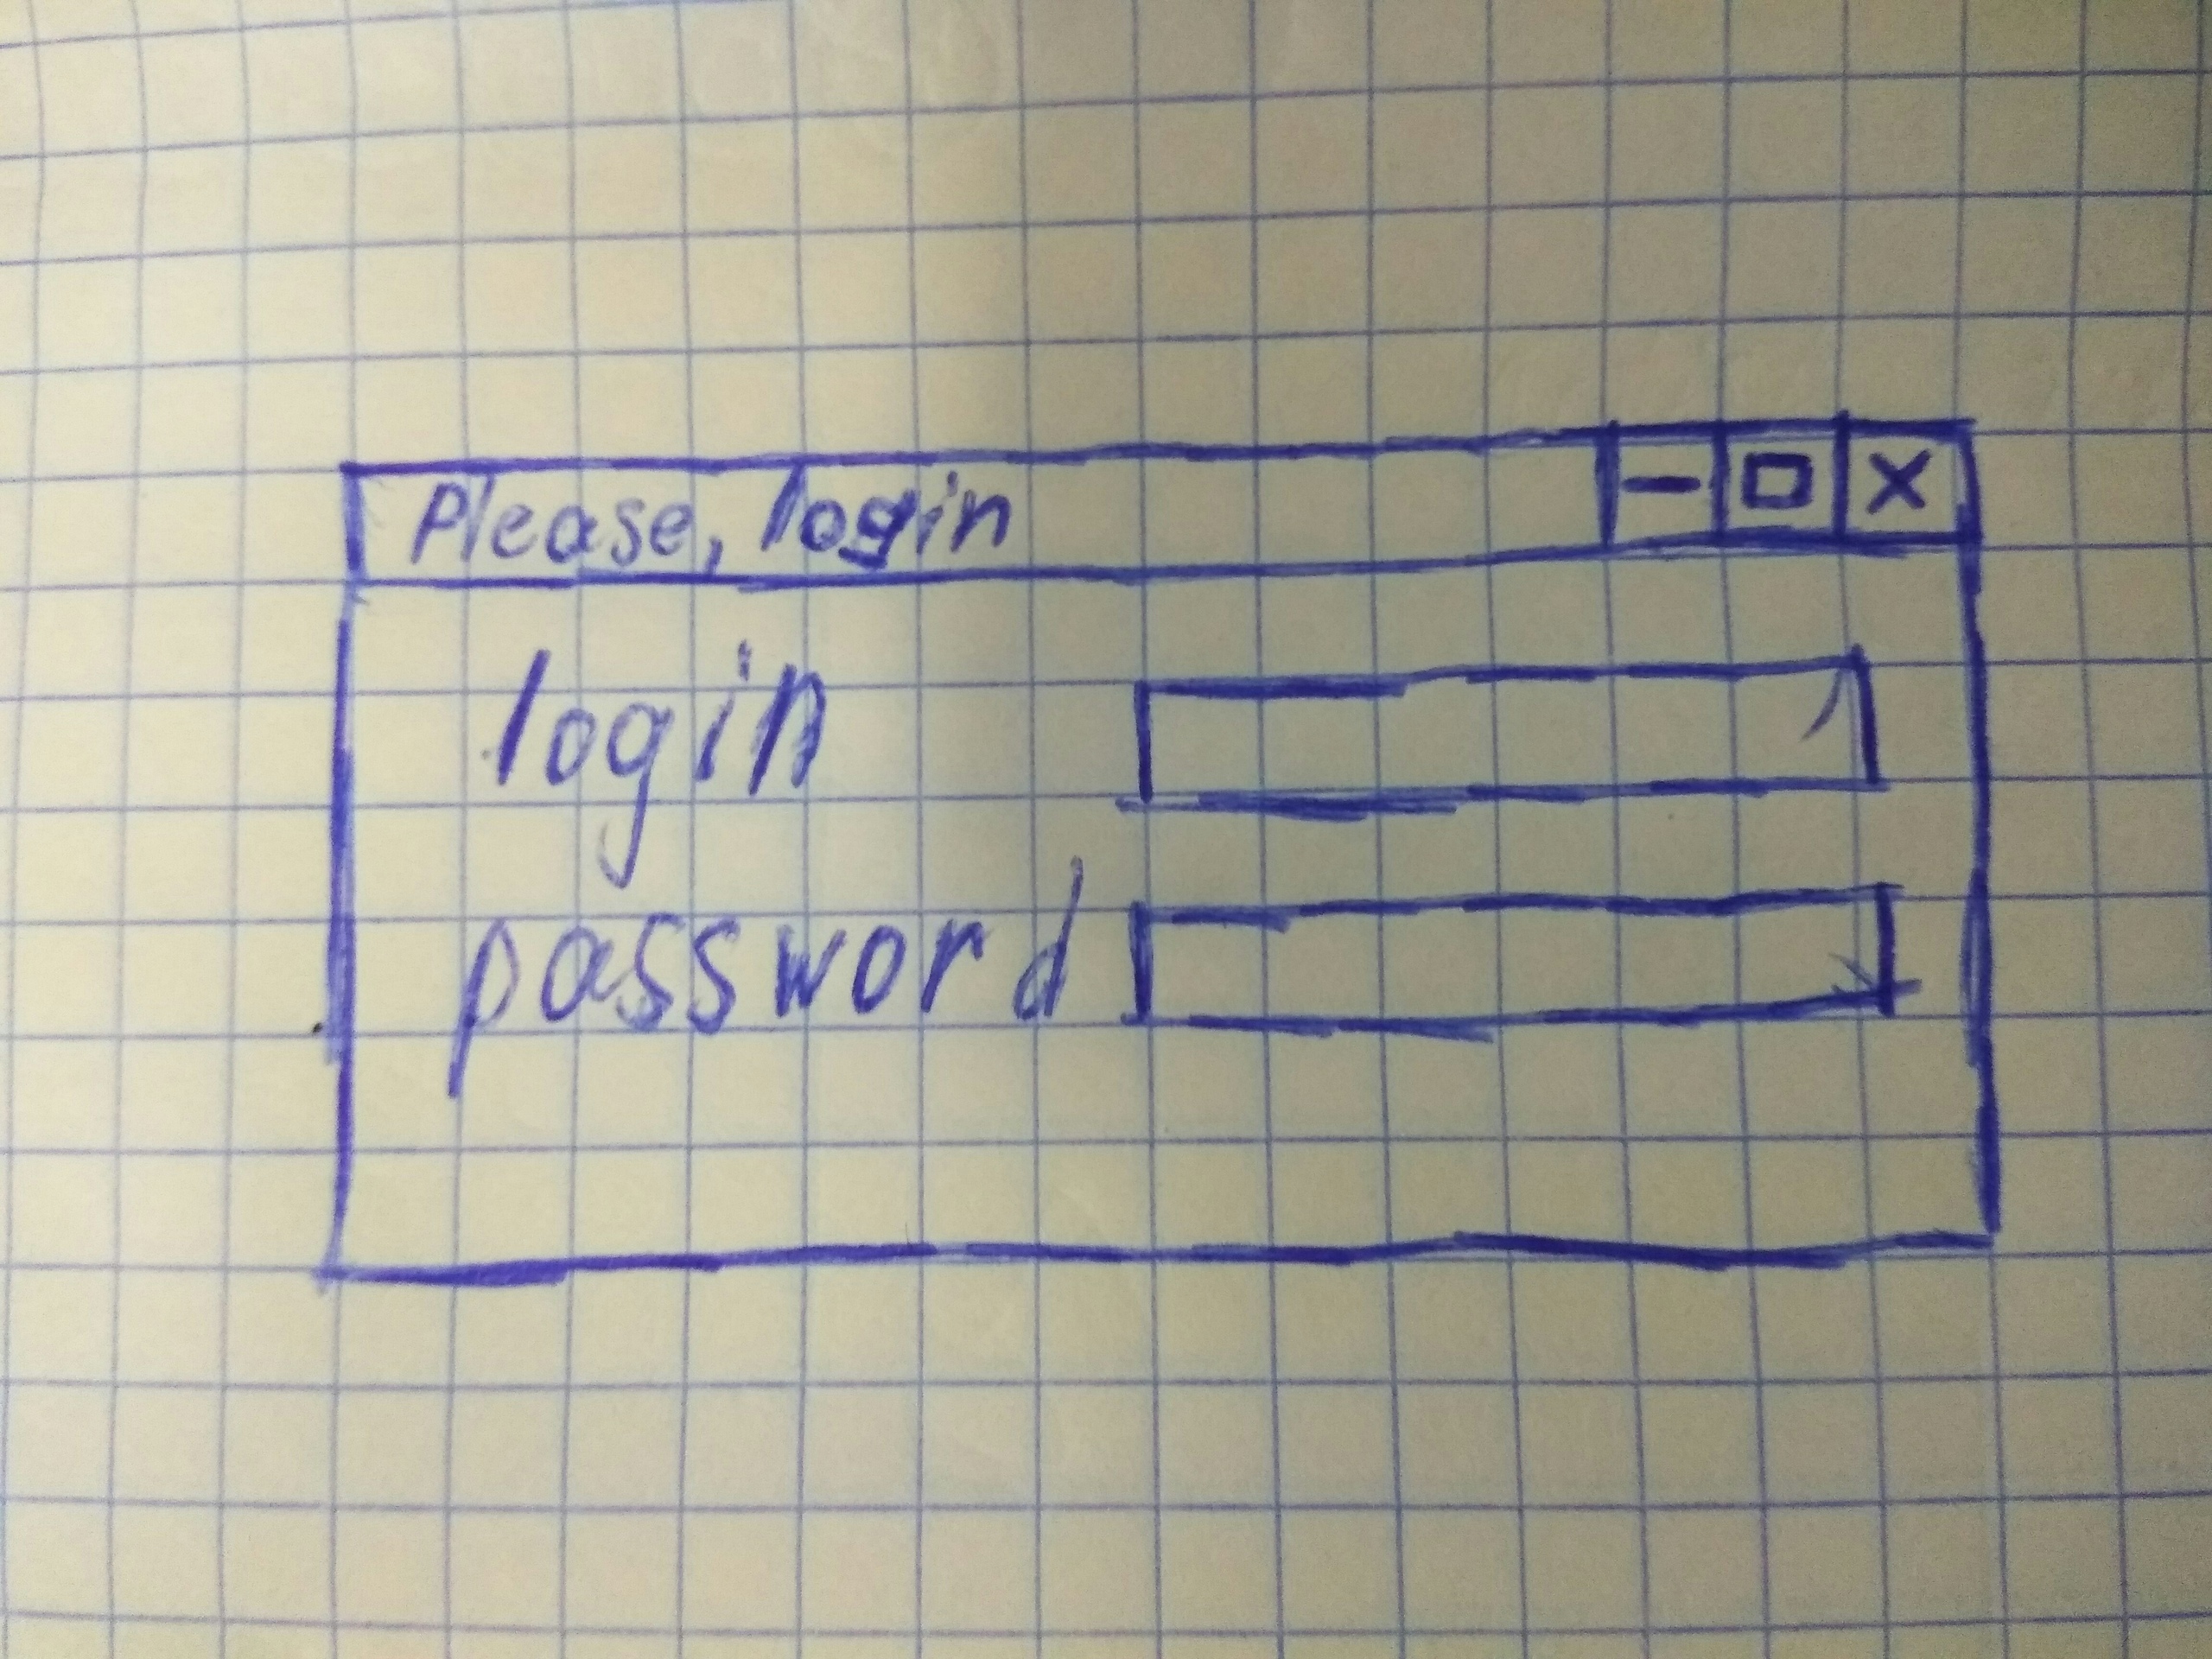 Please, login
login
password